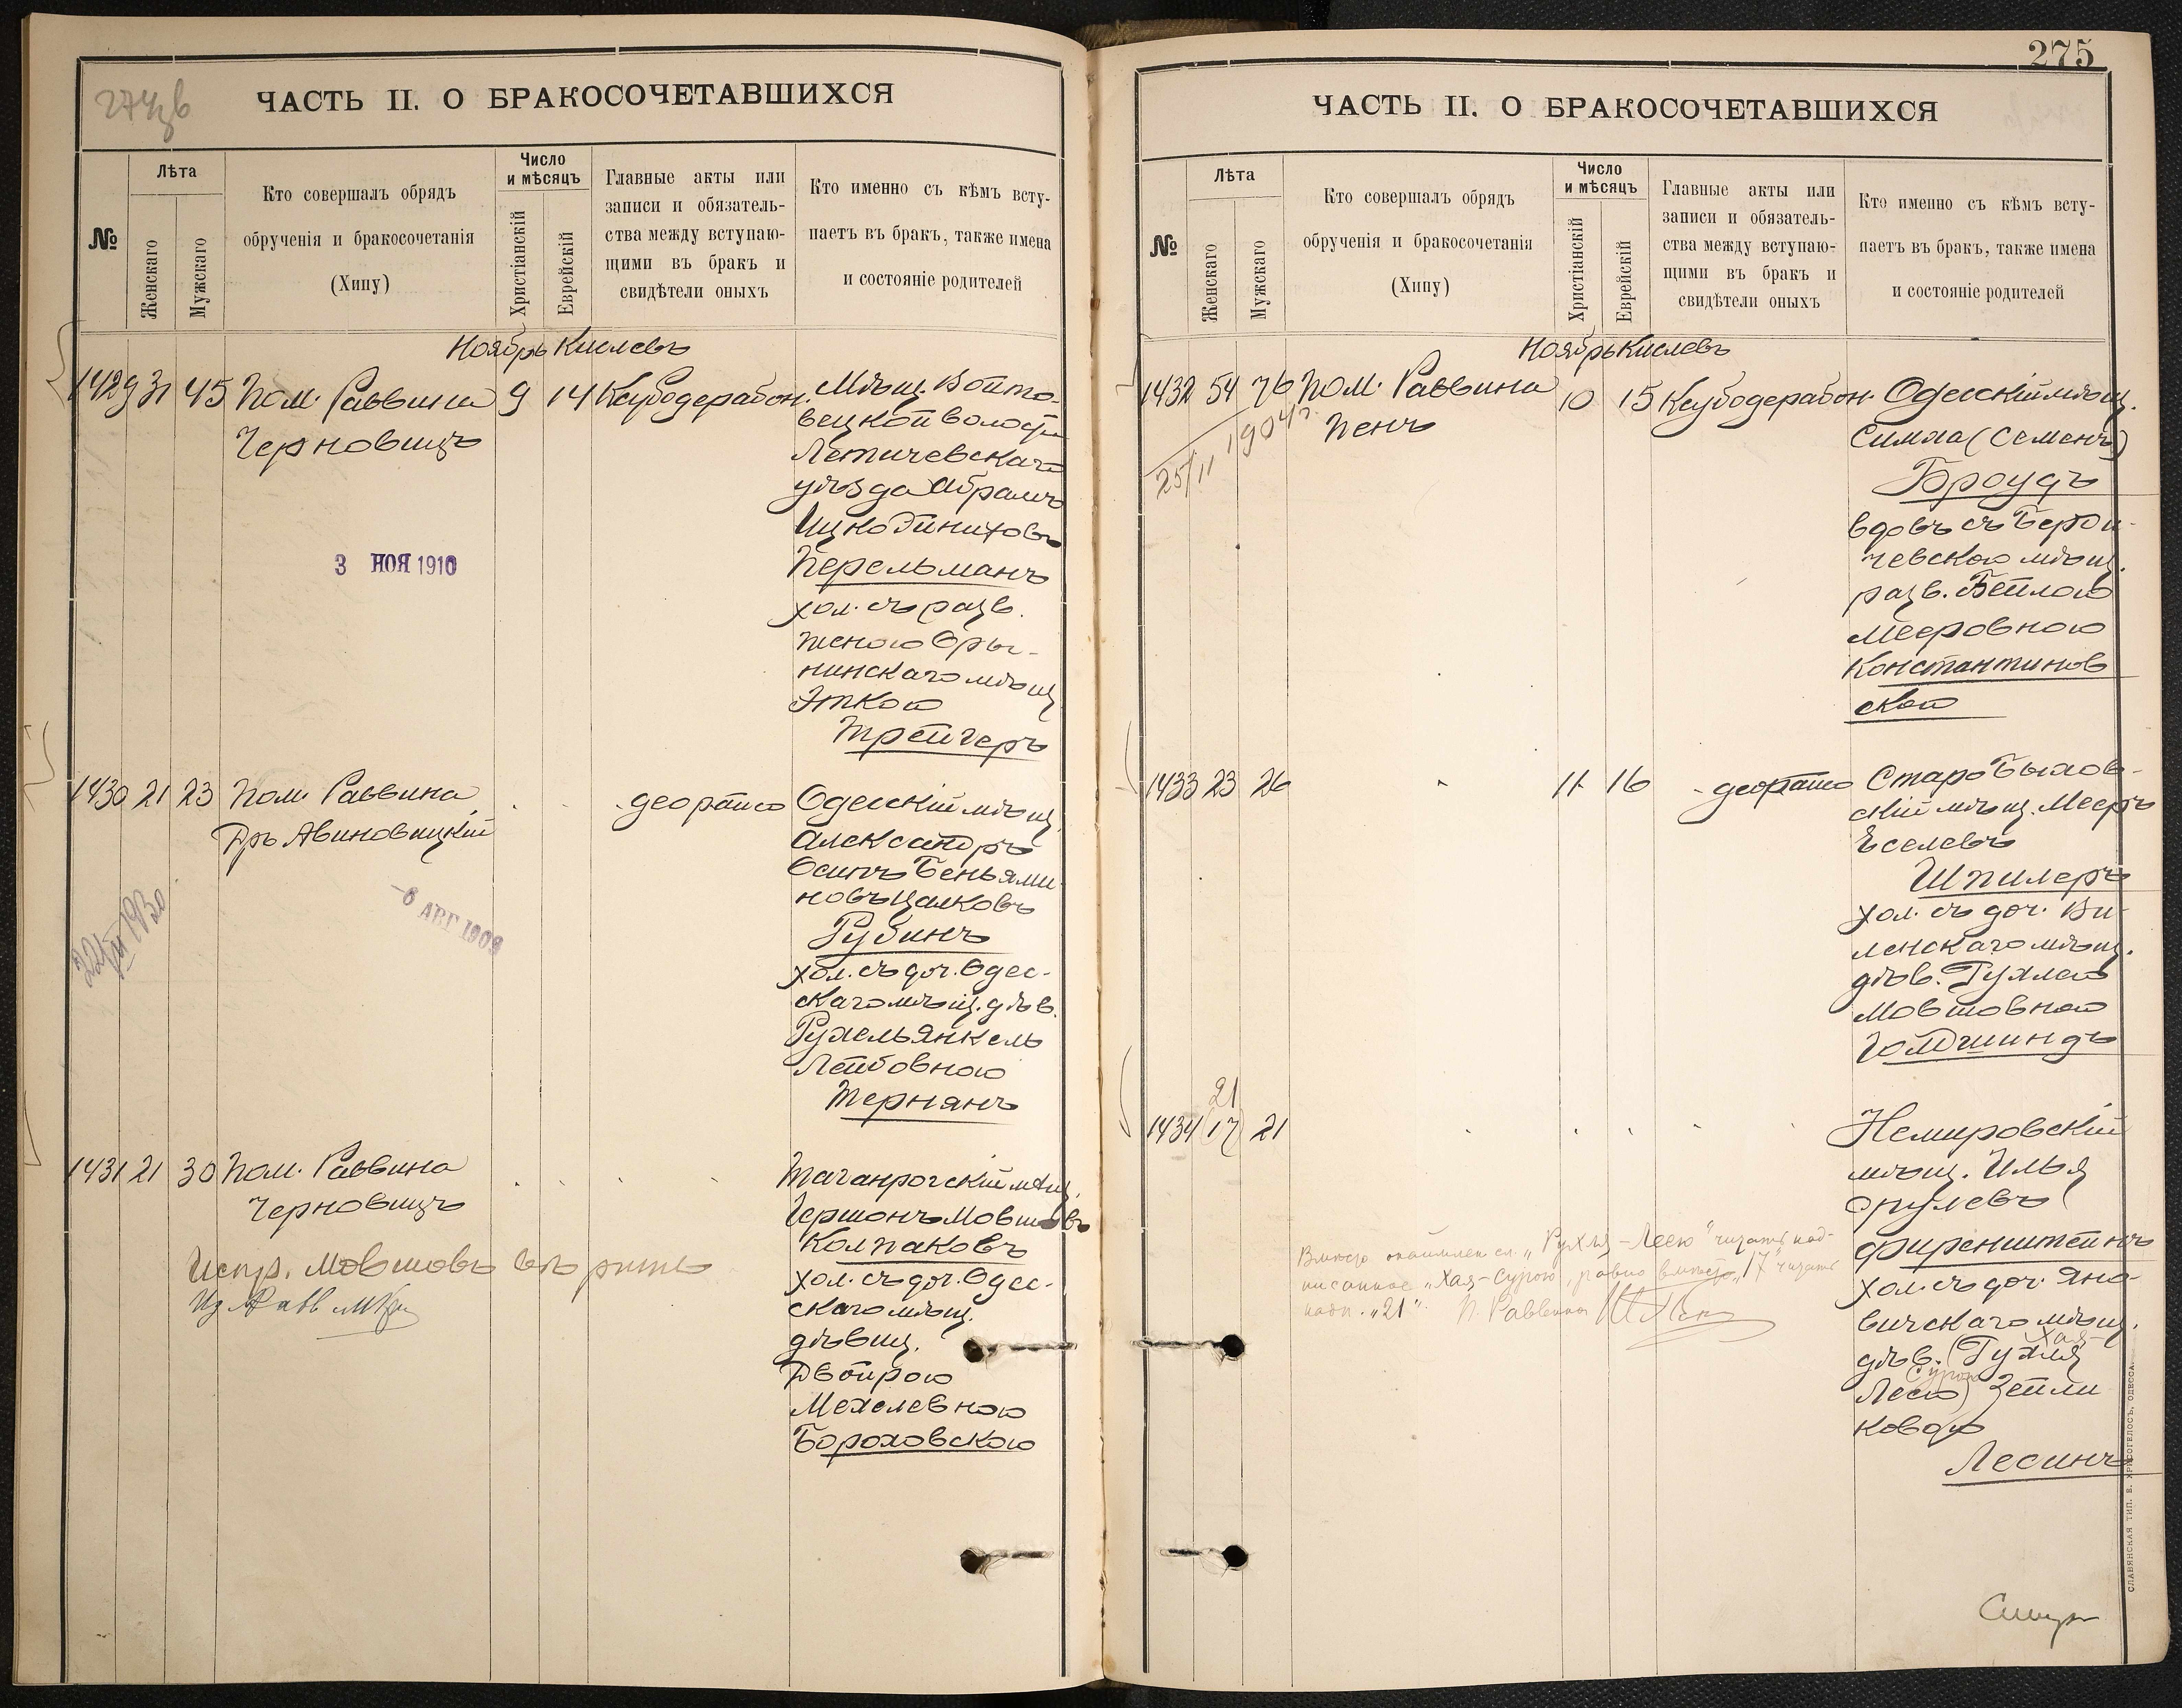 274 об
ЧАСТЬ II. О БРАКОСОЧЕТАВШИХСЯ
№
Лѣта
Женскаго
Мужскаго
Кто совершалъ обрядъ
обрученія и бракосочетанія
(Хипу)
Число
и мѣсяцъ
Христіанскій
Еврейскій
Главные акты или
записи и обязатель-
ства между вступаю-
щими въ бракъ и
свидѣтели оныхъ
Кто именно съ кѣмъ всту-
паетъ въ бракъ, также имена
и состояніе родителей
Ноябрь Кислевъ
1429 31 45 Пом. Раввина 9 14 Ксубо дерабон. Мѣщ. Войто-
Черновицъ
вецкой волости
Летичевскаго
уѣзда Абрамъ
Ицко
Перельманъ
хол. съ разв.
женою Оры-
нинскаго мѣщ.
Эткою
Трейгеръ
3 НОЯ 1910
1430 21 23 Пом. Раввина деорайсо Одесскій мѣщ.
Др. Авиновицкій
Александръ
Осипъ Беньями-
новъ Цалковъ
Рубинъ
хол. съ доч. Одес-
скаго мѣщ. дѣв.
Рухель Янкель
Лейбовною
Тернянъ
-6 АВГ 1909
1431 21 30 Пом. Раввина Таганрогскій мѣщ.
Черновицъ
Гершонъ Мовшовъ
Колпаковъ
хол. съ доч. Одес-
скаго мѣщ.
дѣвиц.
Двойрою
Мехелевною
Бороховскою
Испр. Мовшовъ вѣрить
275
ЧАСТЬ II. О БРАКОСОЧЕТАВШИХСЯ
№
Лѣта
Женскаго
Мужскаго
Кто совершалъ обрядъ
обрученія и бракосочетанія
(Хипу)
Число
и мѣсяцъ
Христіанскій
Еврейскій
Главные акты или
записи и обязатель-
ства между вступаю-
щими въ бракъ и
свидѣтели оныхъ
Кто именно съ кѣмъ всту-
паетъ въ бракъ, также имена
и состояніе родителей
Ноябрь Кислевъ
1432 54 76 Пом. Раввина 10 15 Ксубо дерабон. Одесскій мѣщ.
Пенъ
Симха (Семенъ)
Броудъ
вдовъ съ Берди-
чевскою мѣщ.
разв. Бейлою
Мееровною
Константинов
ской
25/II 1904 г.
1433 23 26 11 16 деорайсо Старо Быхов-
скій мѣщ. Мееръ
Еселевъ
Шпилеръ
хол. съ доч. Ви-
ленскаго мѣщ.
дѣв. Рухлею
Мовшовною
Голдшиндъ
21
1434 (17) 21 Немировскій
мѣщ. Илья
Срулевъ
Фиренштейнъ
хол. съ доч. Яно-
вичскаго мѣщ.
Хая-
дѣв. (Рухля
Сурою
Лею) Зейли
ковою
Лесинъ
Вмѣсто сл. „Рухля-Лею" читать над-
писанное „Хая-Сурою, равно вмѣсто „17" читать
надп. „21". П. Раввина
СЛАВЯНСКАЯ ТИП. Е. ХРИСОГЕЛОСЪ, ОДЕССА.